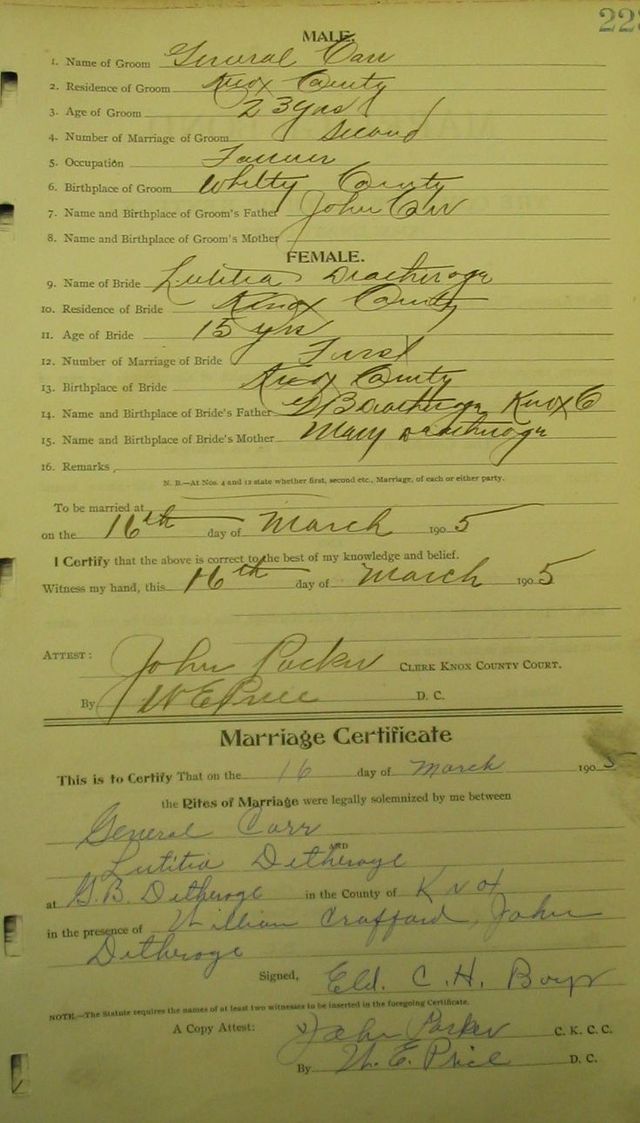 22
MALE.
1. Name of Groom General Carr
2. Residence of Groom Knox County
3. Age of Groom 23 yrs
4. Number of Marriage of Groom Second
5. Occupation Farmer
6. Birthplace of Groom Whitty County
7. Name and Birthplace of Groom's Father John Carr
8. Name and Birthplace of Groom's Mother
FEMALE.
9. Name of Bride Lutitia
10. Residence of Bride Knox County
11. Age of Bride 15 yrs
12. Number of Marriage of Bride First
13. Birthplace of Bride Knox County
14. Name and Birthplace of Bride's Father G B Knox C
15. Name and Birthplace of Bride's Mother Mary
16. Remarks
N. B.—At Nos. 4 and 12 state whether first, second etc., Marriage, of each or either party.
To be married at
on the 16th day of March 1905
I Certify that the above is correct to the best of my knowledge and belief.
Witness my hand, this 16th day of March 1905
ATTEST: John Parker CLERK KNOX COUNTY COURT.
By W E Price D. C.
Marriage Certificate
This is to Certify That on the 16 day of March 1905
the Rites of Marriage were legally solemnized by me between
General Carr
AND
Lutitia Ditheroge
at G.B. Ditheroge in the County of Knox
in the presence of William Crafford, John
Ditheroge
Signed, Eld. C. H. 
NOTE.—The Statute requires the names of at least two witnesses to be inserted in the foregoing Certificate.
A Copy Attest: John Parker C. K. C. C.
By W. E. Price D. C.